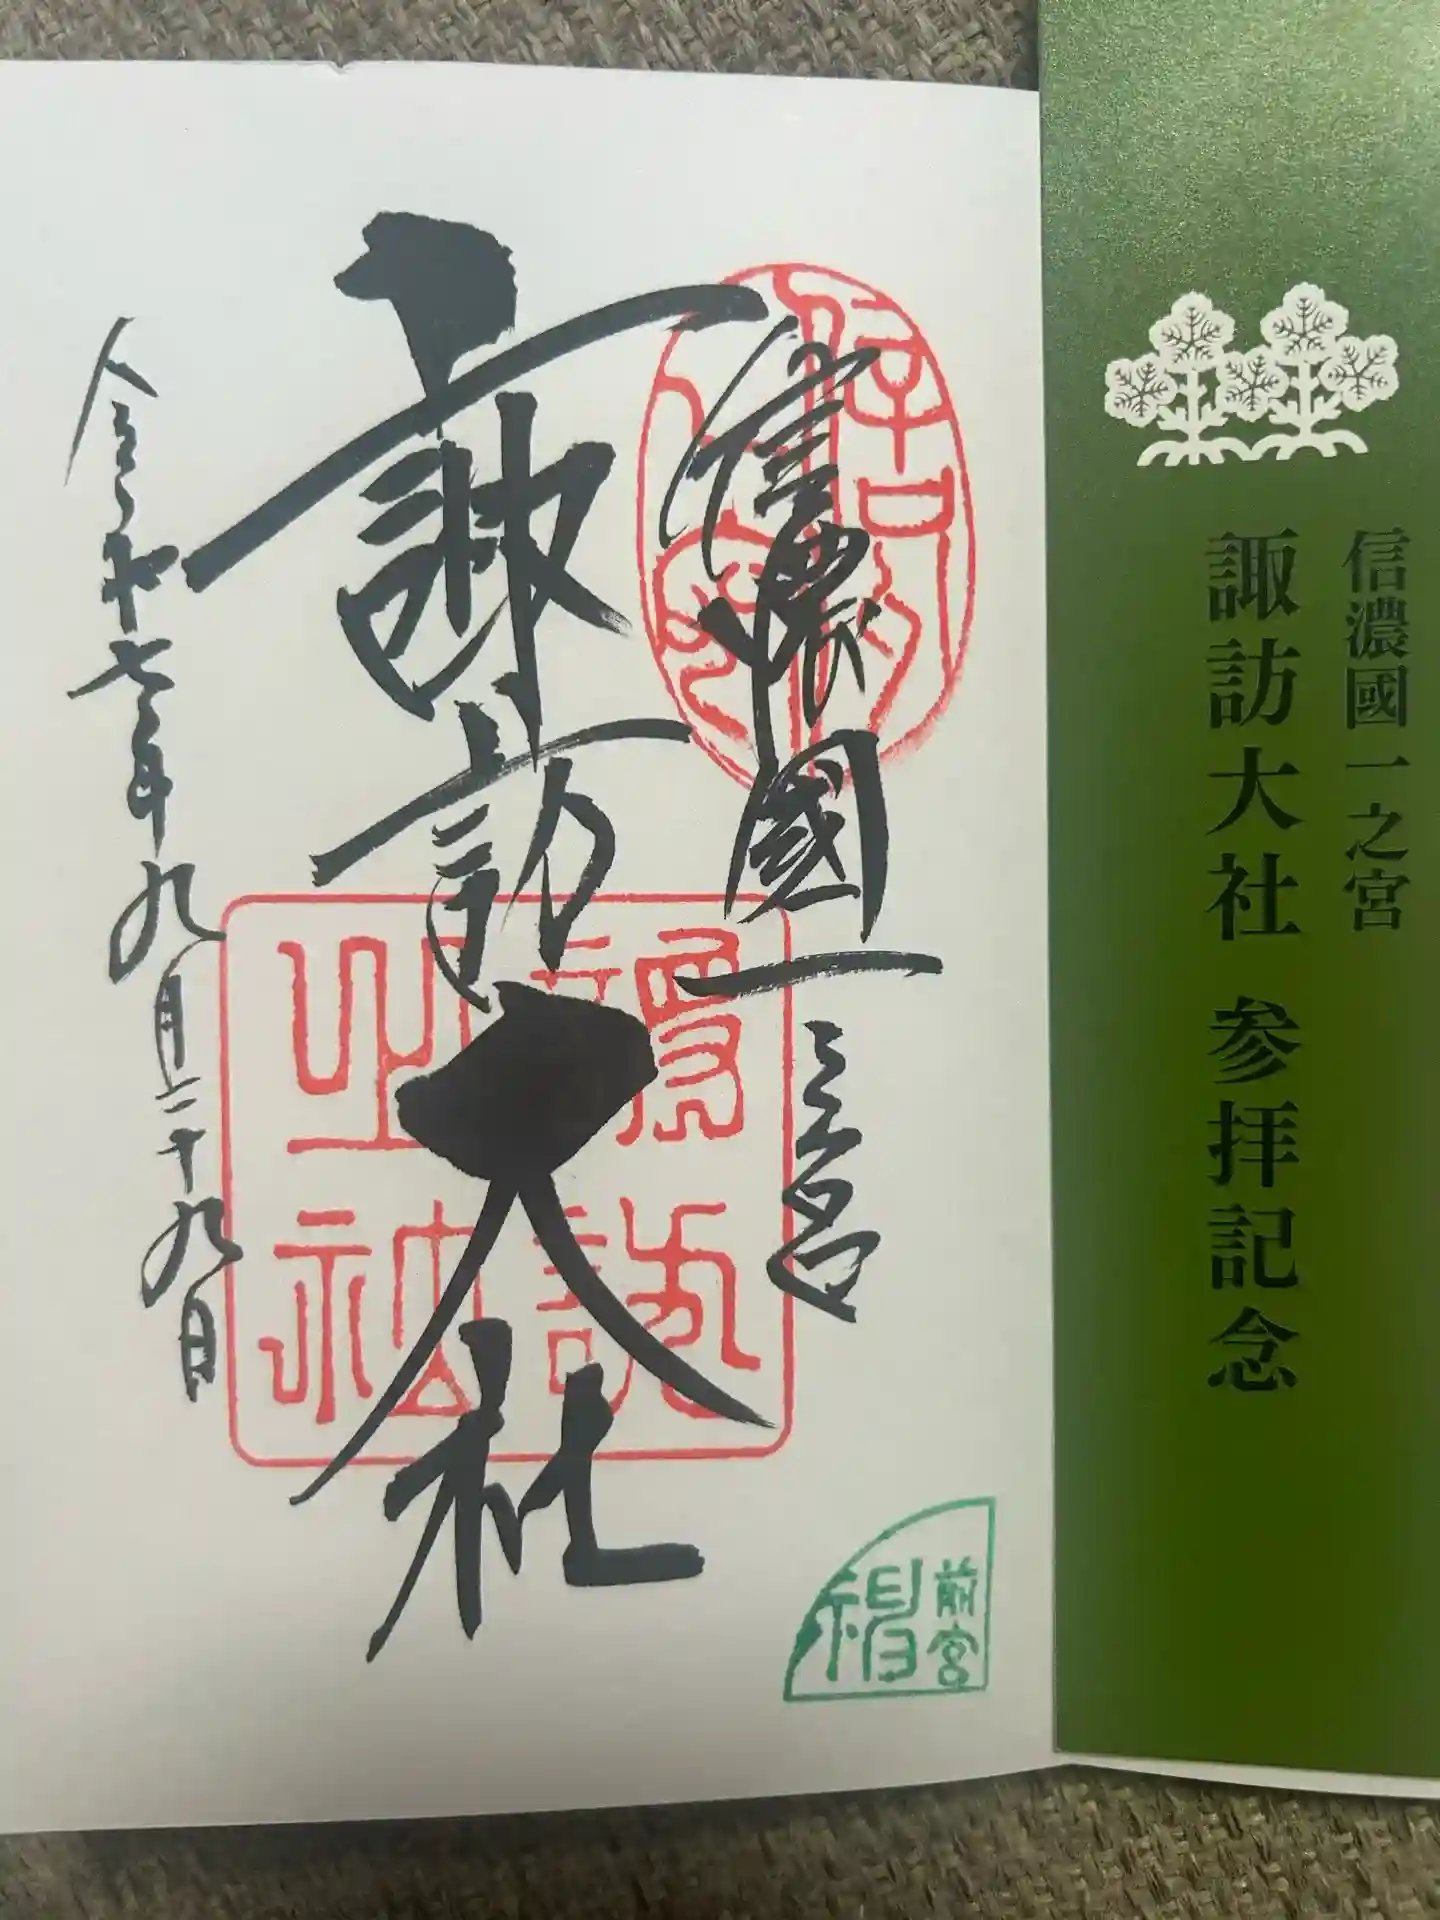 信濃國一之宮
諏訪大社 参拝記念
信濃國一之宮
諏訪大社
令和七年九月二十九日
前宮